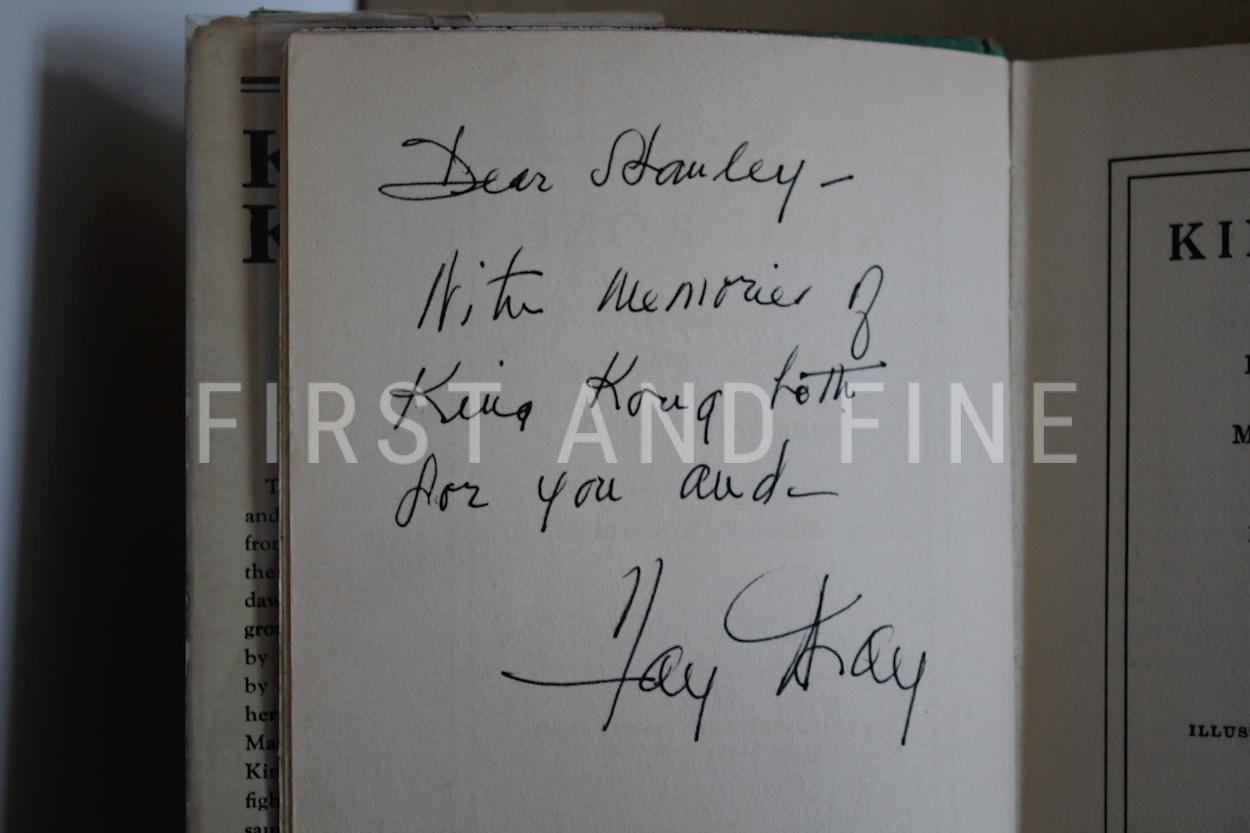 Dear Stanley –
With memories of
King Kong both
for you and –
Fay Wray
FIRST AND FINE
K
K
T
and
from
the
daw
grou
by
by
her
Ma
Kin
figh
sau
KI
M
ILLUS